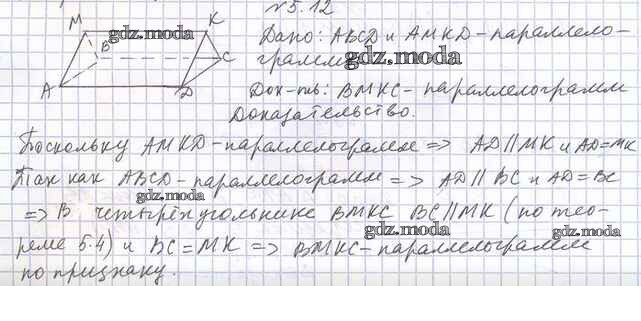 №5.12
M K
gdz.moda
B
C
A D
Дано: ABCD и AMKD - параллело-
грамм
gdz.moda
Док-ть: BMKC - параллелограмм
Доказательство.
Поскольку AMKD - параллелограмм => AD || MK и AD = MK
Так как ABCD - параллелограмм => AD || BC и AD = BC
gdz.moda
=> В четырёхугольнике BMKC BC || MK (по тео-
gdz.moda gdz.moda
реме 5.4) и BC = MK => BMKC - параллелограмм
по признаку.